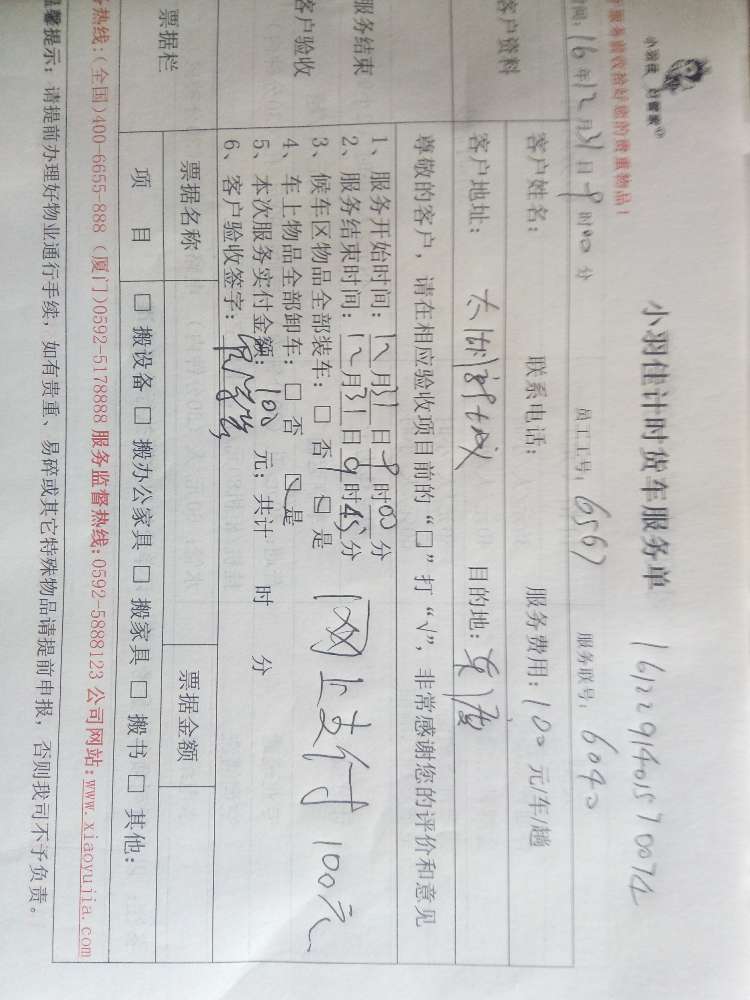 小羽佳 好管家
小羽佳计时货车服务单 1612291401570074
服务前收拾好您的贵重物品！
时间：16年12月31日9时00分 员工工号：6567 服务联号：6040
客户资料
客户姓名： 联系电话： 服务费用：100元/车/趟
客户地址： 目的地：
尊敬的客户，请在相应验收项目前的“□”打“√”，非常感谢您的评价和意见
服务结束
客户验收
1、服务开始时间：12月31日9时00分
2、服务结束时间：12月31日9时45分
3、候车区物品全部装车：□ 否 ☑ 是
4、车上物品全部卸车：□ 否 ☑ 是
5、本次服务实付金额：100元；共计 时 分
6、客户验收签字：
网上支付 100元
票据栏
票据名称 票据金额
项 目 □ 搬设备 □ 搬办公家具 □ 搬家具 □ 搬书 □ 其他：
务热线：(全国)400-6655-888 (厦门)0592-5178888 服务监督热线：0592-5888123 公司网站：www.xiaoyujia.com
温馨提示：请提前办理好物业通行手续，如有贵重、易碎或其它特殊物品请提前申报，否则我司不予负责。